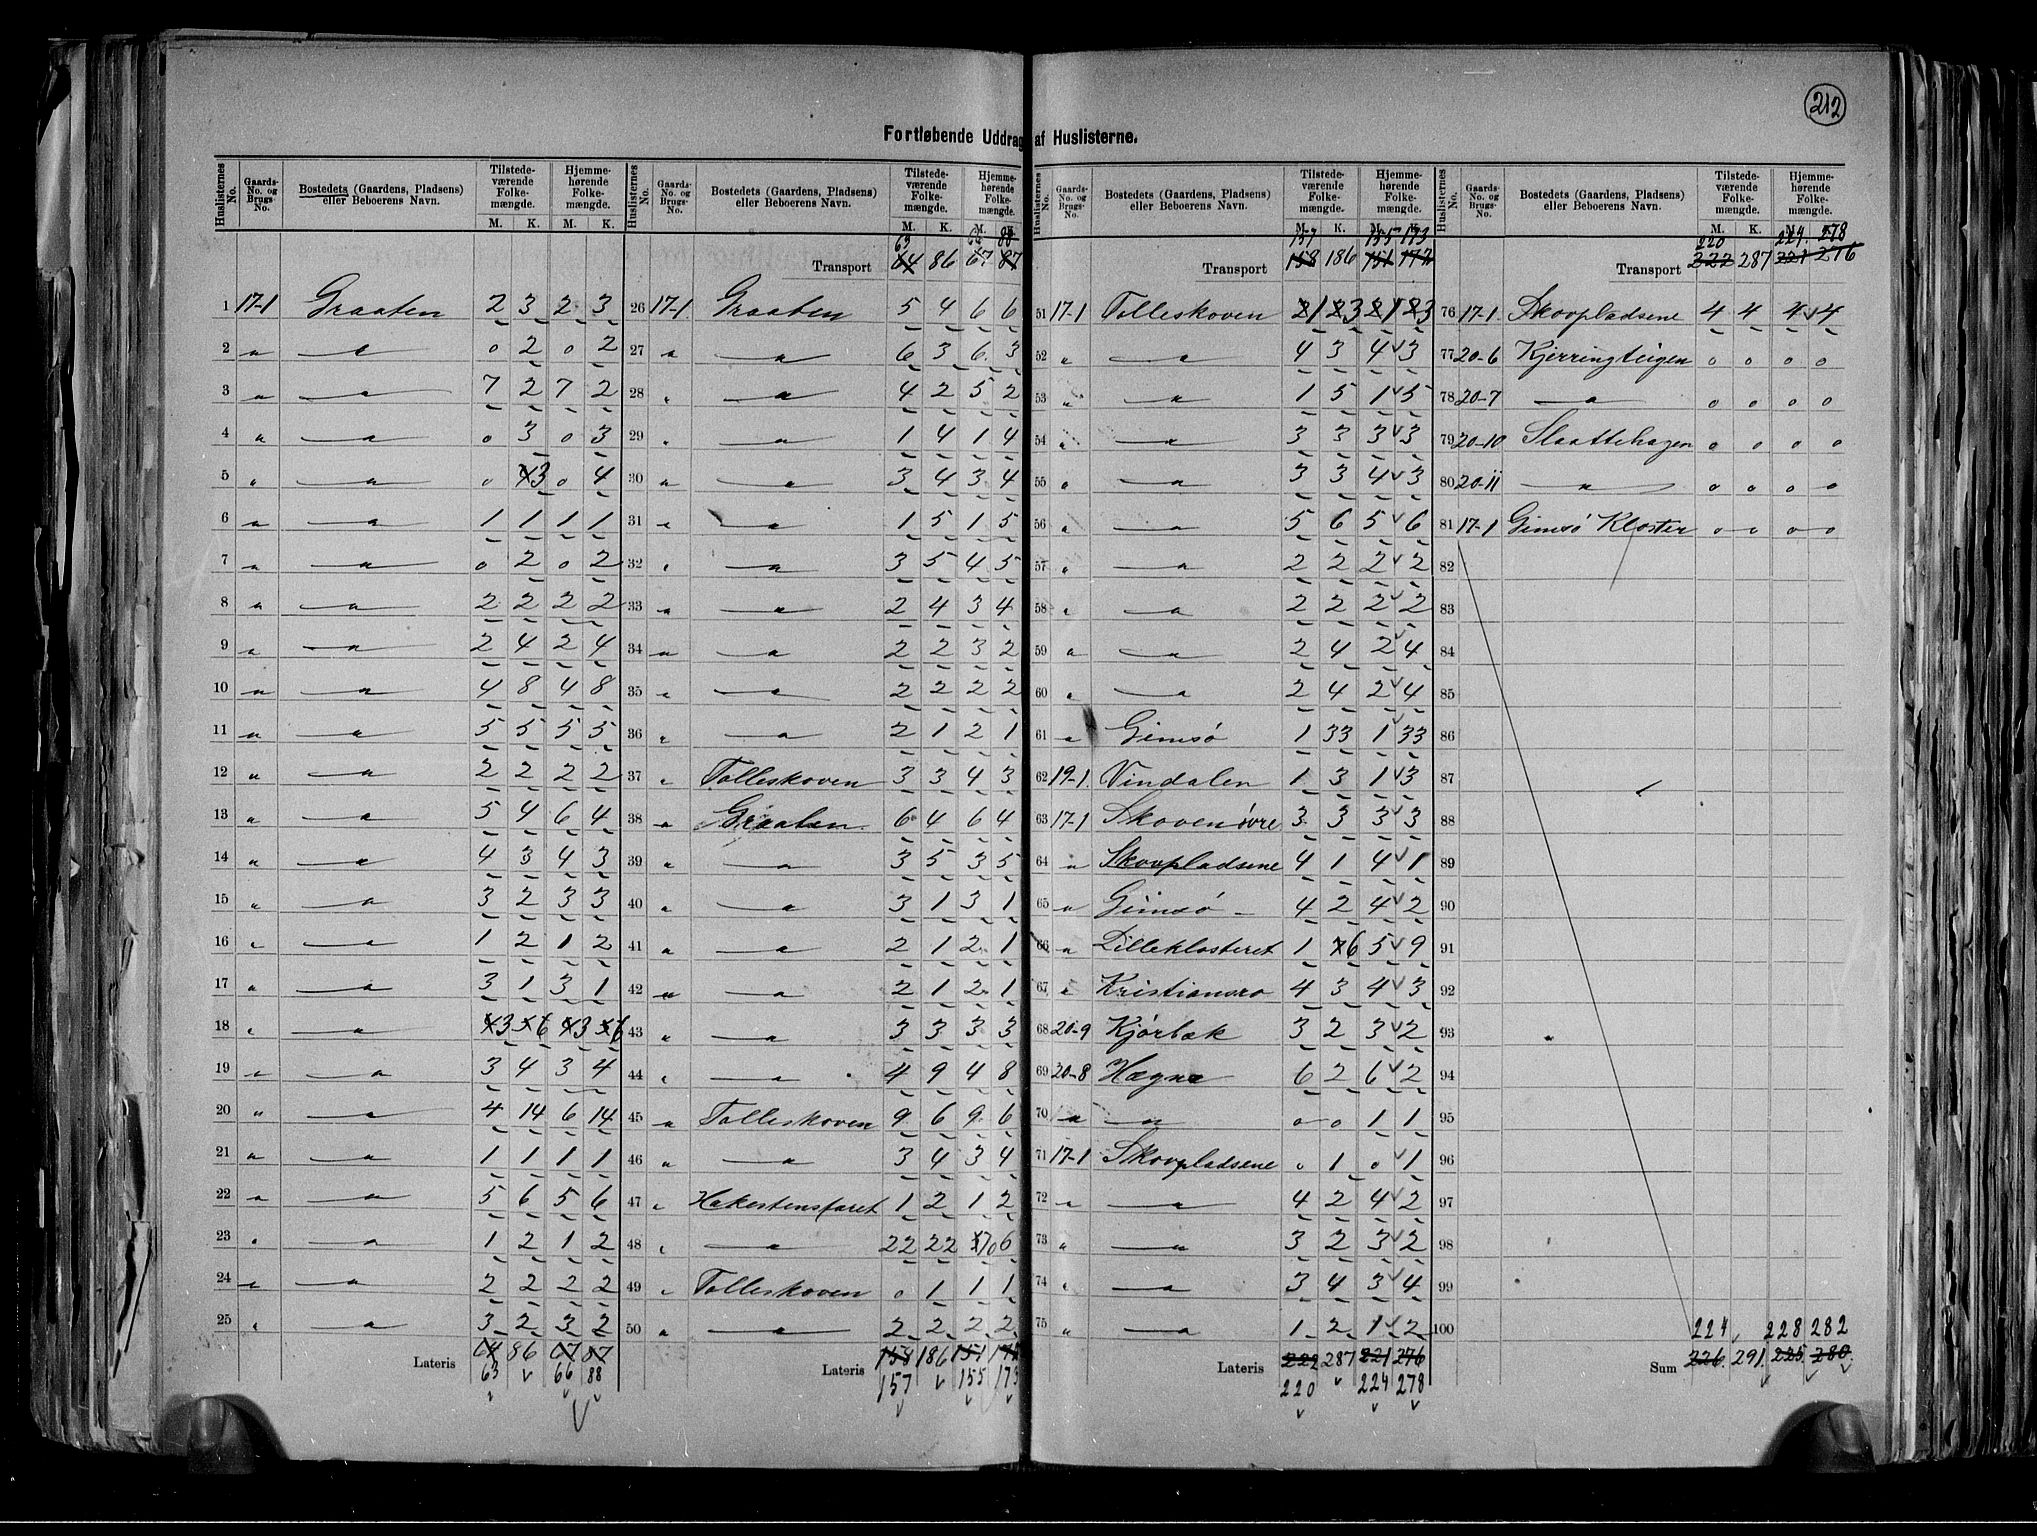 212
Fortløbende Uddrag af Huslisterne.
Huslisternes No. | Gaards-No. og Brugs-No. | Bostedets (Gaardens, Pladsens) eller Beboerens Navn. | Tilstedeværende Folkemængde. M. K. | Hjemmehørende Folkemængde. M. K.
1 17-1 Graaten 2 3 2 3
2 " " 0 2 0 2
3 " " 7 2 7 2
4 " " 0 3 0 3
5 " " 0 3 0 4
6 " " 1 1 1 1
7 " " 0 2 0 2
8 " " 2 2 2 2
9 " " 2 4 2 4
10 " " 4 8 4 8
11 " " 5 5 5 5
12 " " 2 2 2 2
13 " " 5 4 6 4
14 " " 4 3 4 3
15 " " 3 2 3 3
16 " " 1 2 1 2
17 " " 3 1 3 1
18 " " 3 6 3 6
19 " " 3 4 3 4
20 " " 4 14 6 14
21 " " 1 1 1 1
22 " " 5 6 5 6
23 " " 1 2 1 2
24 " " 2 2 2 2
25 " " 3 2 3 2
Lateris 64 86 67 87
63 66 88
Huslisternes No. | Gaards-No. og Brugs-No. | Bostedets (Gaardens, Pladsens) eller Beboerens Navn. | Tilstedeværende Folkemængde. M. K. | Hjemmehørende Folkemængde. M. K.
63 66 88
Transport 64 86 67 87
26 17-1 Graaten 5 4 6 6
27 " " 6 3 6 3
28 " " 4 2 5 2
29 " " 1 4 1 4
30 " " 3 4 3 4
31 " " 1 5 1 5
32 " " 3 5 4 5
33 " " 2 4 3 4
34 " " 2 2 3 2
35 " " 2 2 2 2
36 " " 2 1 2 1
37 " Tolleskoven 3 3 4 3
38 " Graaten 6 4 6 4
39 " " 3 5 3 5
40 " " 3 1 3 1
41 " " 2 1 2 1
42 " " 2 1 2 1
43 " " 3 3 3 3
44 " " 4 9 4 8
45 " Tolleskoven 9 6 9 6
46 " " 3 4 3 4
47 " Hakestensfaret 1 2 1 2
48 " " 22 22 6
49 " Tolleskoven 0 1 1 1
50 " " 2 2 2 2
Lateris 158 186 151 172
157 155 173
Huslisternes No. | Gaards-No. og Brugs-No. | Bostedets (Gaardens, Pladsens) eller Beboerens Navn. | Tilstedeværende Folkemængde. M. K. | Hjemmehørende Folkemængde. M. K.
157 155 173
Transport 158 186 151 172
51 17-1 Tolleskoven 1 3 1 3
52 " " 4 3 4 3
53 " " 1 5 1 5
54 " " 3 3 3 3
55 " " 3 3 4 3
56 " " 5 6 5 6
57 " " 2 2 2 2
58 " " 2 2 2 2
59 " " 2 4 2 4
60 " " 2 4 2 4
61 " Gimsø 1 33 1 33
62 19-1 Vindalen 1 3 1 3
63 17-1 Skoven øvre 3 3 3 3
64 " Skovpladsene 4 1 4 1
65 " Gimsø 4 2 4 2
66 " Lilleklosteret 1 6 5 9
67 " Kristiansro 4 3 4 3
68 20-9 Kjørbæk 3 2 3 2
69 20-8 Hægna 6 2 6 2
70 " " 0 0 1 1
71 17-1 Skovpladsene 0 1 0 1
72 " " 4 2 4 2
73 " " 3 2 3 2
74 " " 3 4 3 4
75 " " 1 2 1 2
Lateris 222 287 221 276
220 224 278
Huslisternes No. | Gaards-No. og Brugs-No. | Bostedets (Gaardens, Pladsens) eller Beboerens Navn. | Tilstedeværende Folkemængde. M. K. | Hjemmehørende Folkemængde. M. K.
220 224 278
Transport 222 287 221 276
76 17-1 Skovpladsene 4 4 4 4
77 20-6 Kjerringteigen 0 0 0 0
78 20-7 " 0 0 0 0
79 20-10 Slaattehagen 0 0 0 0
80 20-11 " 0 0 0 0
81 17-1 Gimsö Kloster 0 0 0 0
82
83
84
85
86
87
88
89
90
91
92
93
94
95
96
97
98
99
100
224 228 282
Sum 226 291 225 280